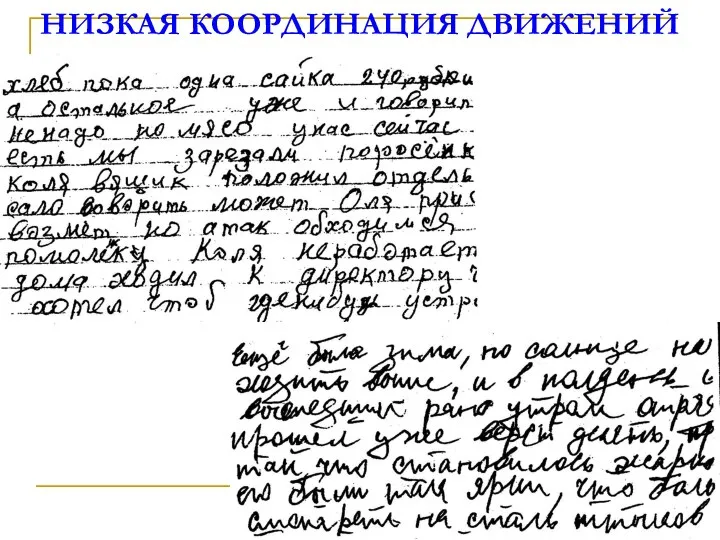 НИЗКАЯ КООРДИНАЦИЯ ДВИЖЕНИЙ
хлеб пока одна сайка 240 рубли
а остальное уже и говорит
ненадо но мясо унас сейчас
есть мы зарезали поросёнк
Коля вящик положил отдель
сало говорить может Оля при
возмёт но атак обходимся
помолёку Коля неработает
дома ходил к директору ч
хотел чтоб гденибудь устр
ещё была зима, но солнце на
ходить выше, и в полдень
вышедший рано утром отря
прошел уже верст десять,
так, что становилось жарко
его были так ярки, что боль
смотреть на сталь штыков